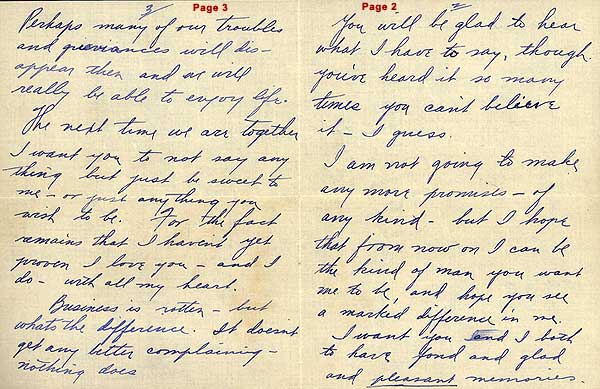 Page 2
2
You will be glad to hear
what I have to say, though
you've heard it so many
times you can't believe
it - I guess.
I am not going to make
any more promises - of
any kind - but I hope
that from now on I can be
the kind of man you want
me to be, and hope you see
a marked difference in me.
I want you and I both
to have fond and glad
and pleasant memories.
Page 3
3
Perhaps many of our troubles
and grievances will dis-
appear then and we will
really be able to enjoy life.
The next time we are together
I want you to not say any
thing but just be sweet to
me - or just anything you
wish to be. For the fact
remains that I haven't yet
proven I love you - and I
do - with all my heart.
Business is rotten - but
whats the difference. It doesn't
get any better complaining -
nothing does